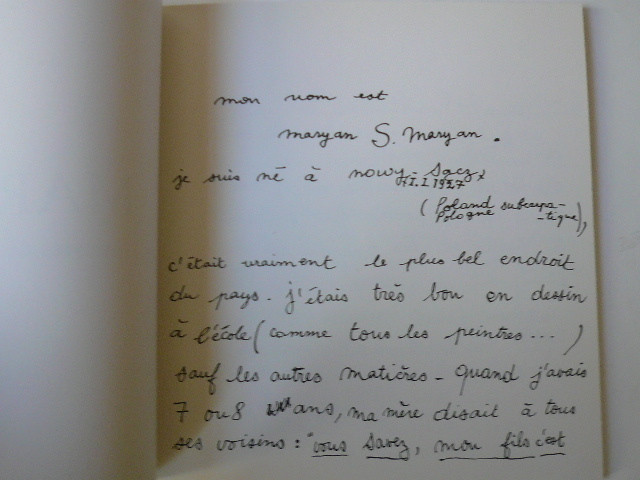 mon nom est
maryan S. Maryan.
je suis né à nowy-Sącz,
1.1.1927
(Poland subcarpa-
Pologne -tique),
c'était vraiment le plus bel endroit
du pays. j'étais très bon en dessin
à l'école (comme tous les peintres...)
sauf les autres matières - Quand j'avais
7 ou 8 ans, ma mère disait à tous
ses voisins : "vous savez, mon fils c'est